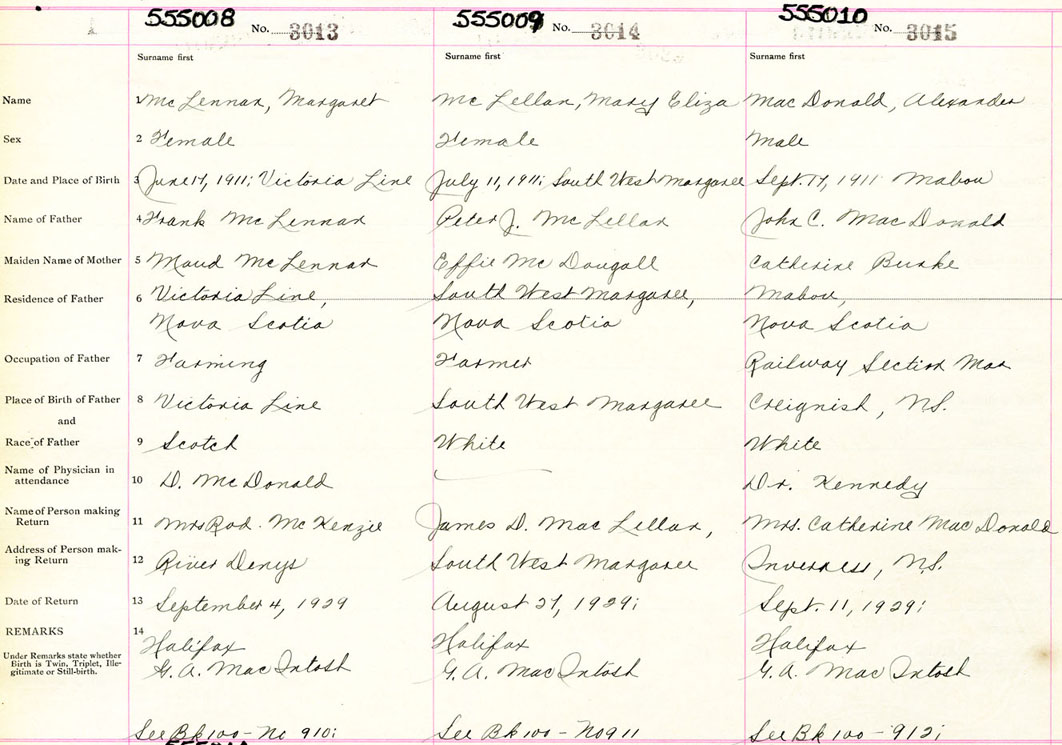 555008 No. 3013 555009 No. 3014 555010 No. 3015
Surname first Surname first Surname first
Name 1 McLennan, Margaret McLellan, Mary Eliza MacDonald, Alexander
Sex 2 Female Female Male
Date and Place of Birth 3 June 17, 1911; Victoria Line July 11, 1911; South West Margaree Sept. 17, 1911 Mabou
Name of Father 4 Frank McLennan Peter J. McLellan John C. MacDonald
Maiden Name of Mother 5 Maud McLennan Effie McDougall Catherine Burke
Residence of Father 6 Victoria Line, South West Margaree, Mabou,
Nova Scotia Nova Scotia Nova Scotia
Occupation of Father 7 Farming Farmer Railway Section Man
Place of Birth of Father 8 Victoria Line South West Margaree Creignish, N.S.
and
Race of Father 9 Scotch White White
Name of Physician in
attendance 10 D. McDonald Dr. Kennedy
Name of Person making
Return 11 Mrs Rod. McKenzie James D. MacLellan, Mrs. Catherine MacDonald
Address of Person mak-
ing Return 12 River Denys South West Margaree Inverness, N.S.
Date of Return 13 September 4, 1929 August 27, 1929; Sept. 11, 1929;
REMARKS 14 Halifax Halifax Halifax
Under Remarks state whether
Birth is Twin, Triplet, Ille-
gitimate or Still-birth. G. A. MacIntosh G. A. MacIntosh G. A. MacIntosh
See Bk 100 - No 910; See Bk 100 - No 911 See Bk 100 - 912;